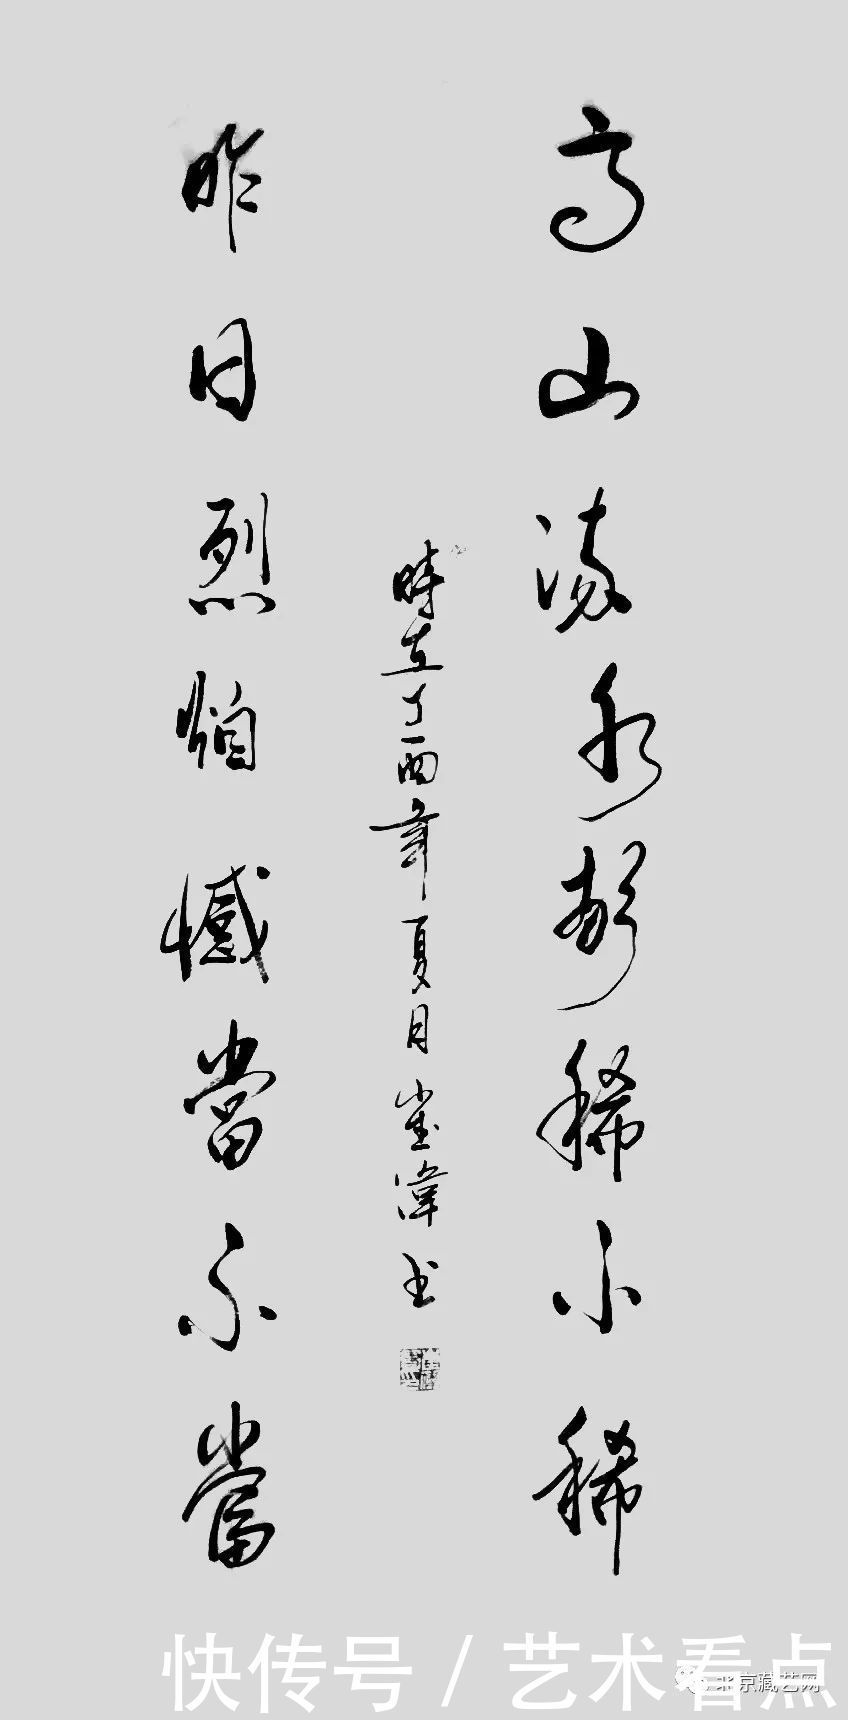 高山流水韵稀不稀
昨日烈焰憾當不當
時在丁酉年夏月崔偉书
快传号 / 艺术看点
北京藏艺网